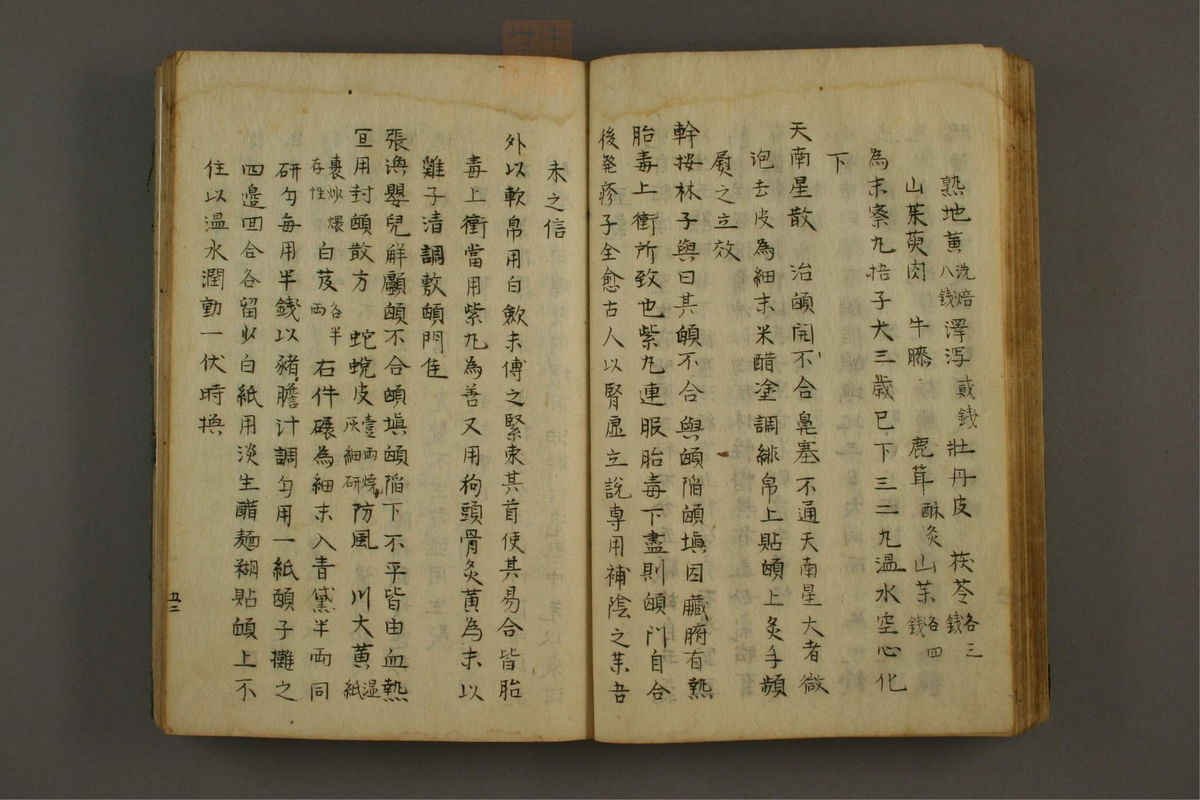 熟地黄洗焙八銭澤瀉貳銭牡丹皮 茯苓各三銭
山茱萸肉 牛膝 鹿茸酥灸山茱各四銭
為末蜜丸梧子大三歳已下三二丸温水空心化
下
天南星散 治䪿開不合鼻塞不通天南星大者微
泡去皮為細末米醋塗調緋帛上貼䪿上灸手頻
熨之立效
幹按林子與曰其䪿不合與䪿陥䪿塡因臓腑有熱
胎毒上衝所致也紫丸連服胎毒下盡則䪿門自合
後発疹子全愈古人以腎虚立説専用補陰之茱吾
未之信
外以軟帛用白歛末傅之緊束其首使其易合皆胎
毒上衝當用紫丸為善又用狗頭骨灸黄為末以
雞子清調敷䪿門佳
張渙嬰兒解顱䪿不合䪿塡䪿陥下不平皆由血熱
宣用封䪿散方 蛇蛻皮壹両燒灰細研防風 川大黄湿紙
裹炒煨存性白芨各半両右件碾為細末入青黛半両同
研匀毎用半銭以豬膽汁調匀用一紙䪿子攤之
四邊回合各留少白紙用淡生醋麺糊貼䪿上不
住以温水潤動一伏時換